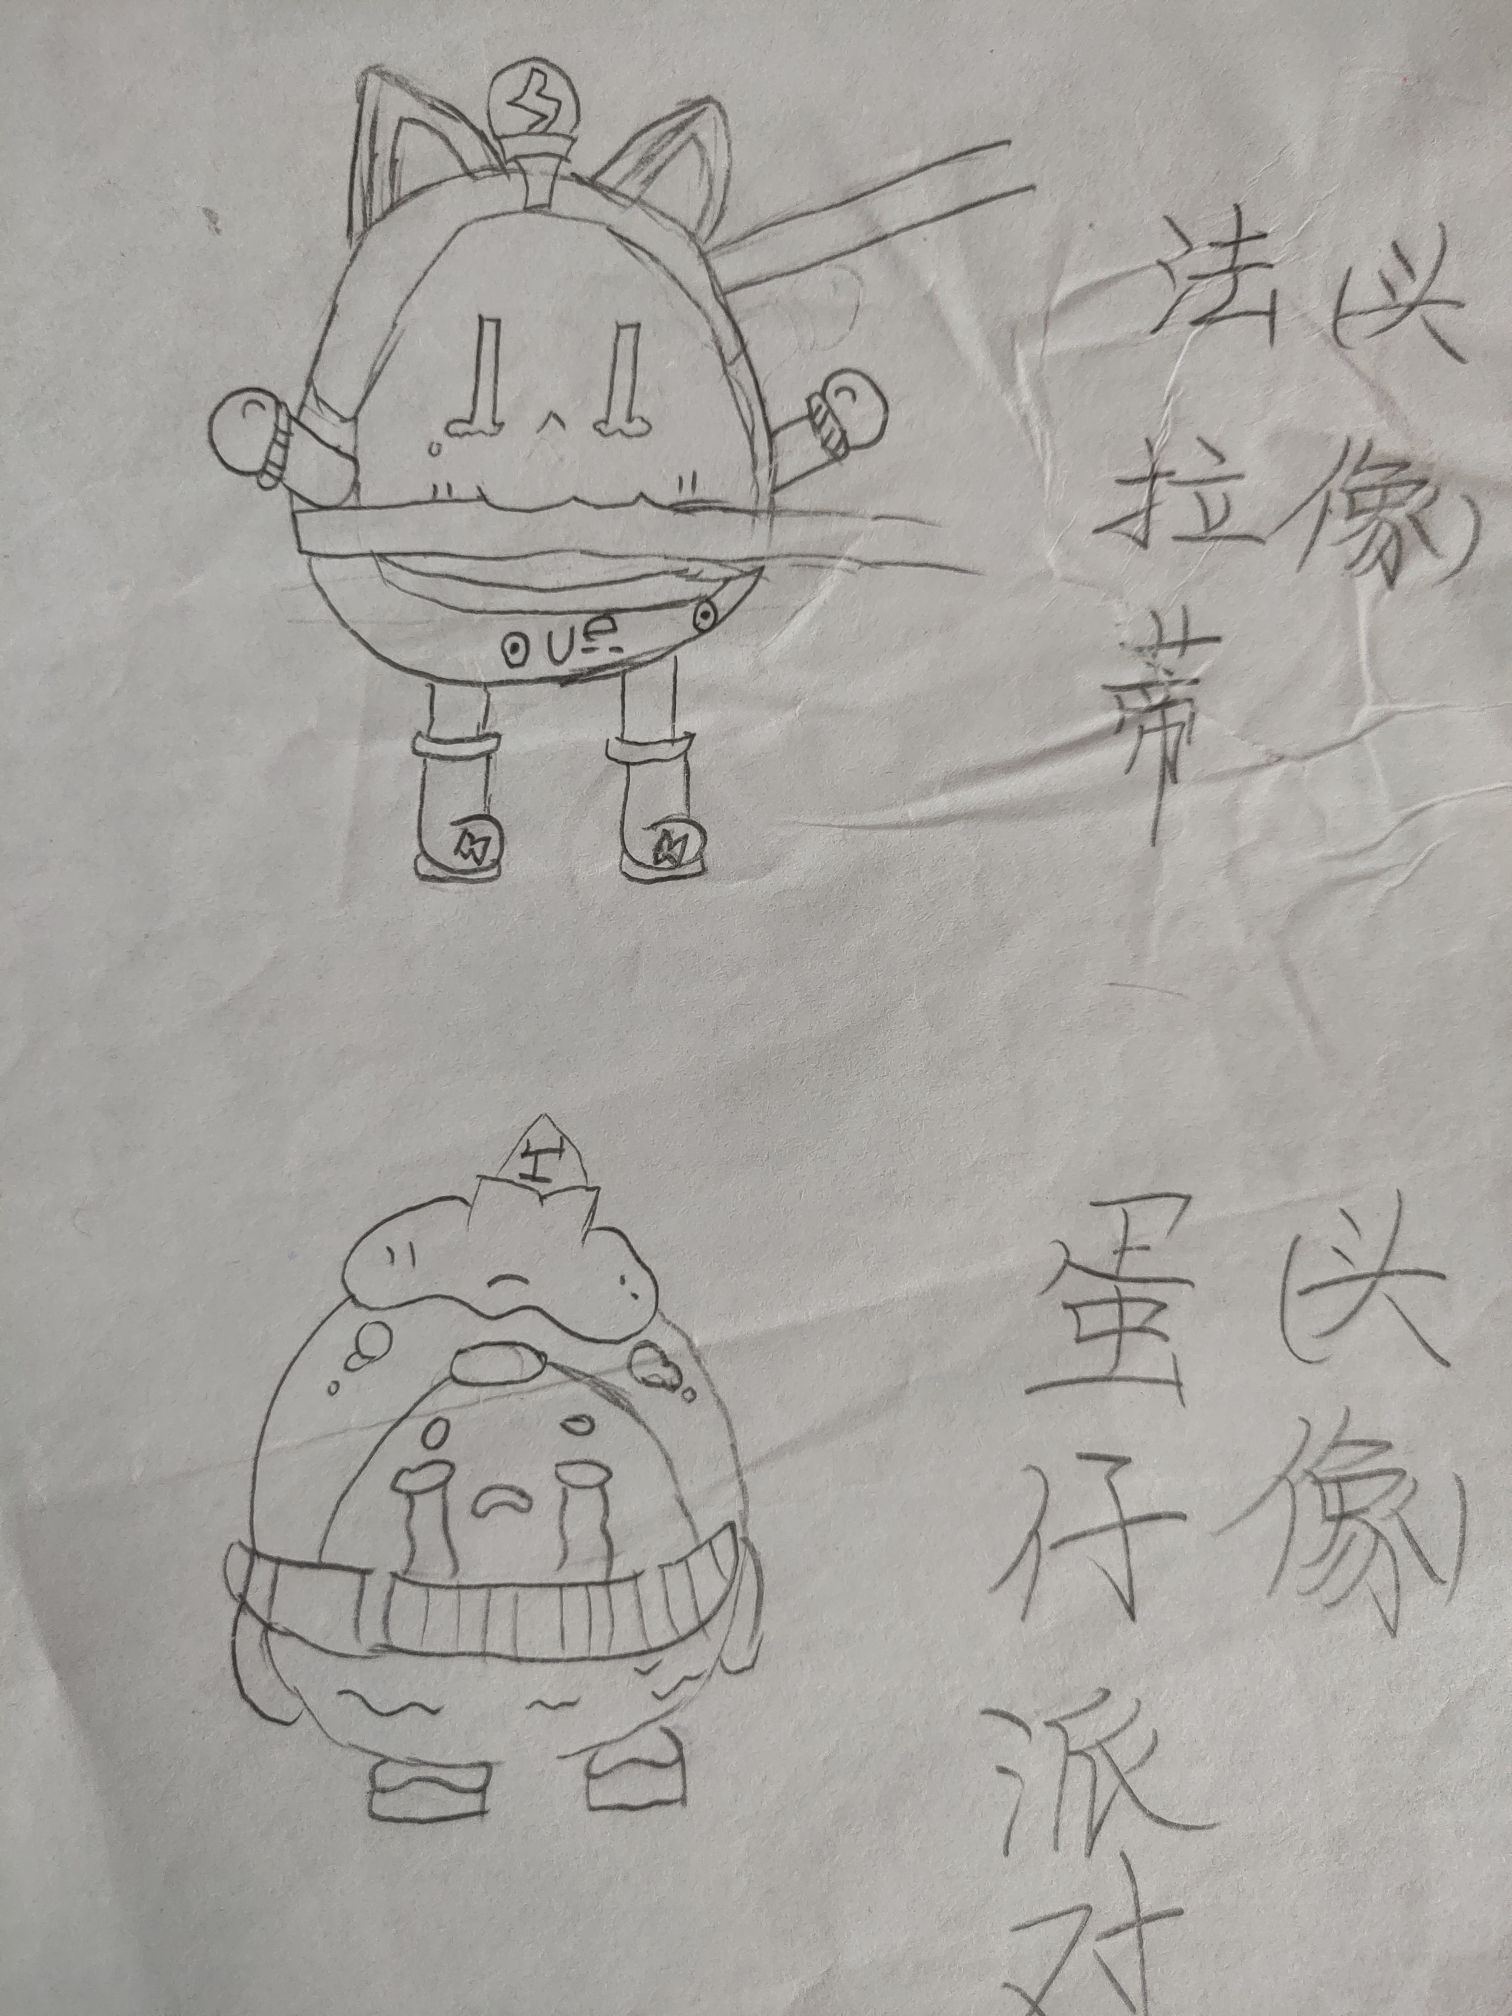 法拉蒂
(头像)
ue
H
蛋仔派对
(头像)